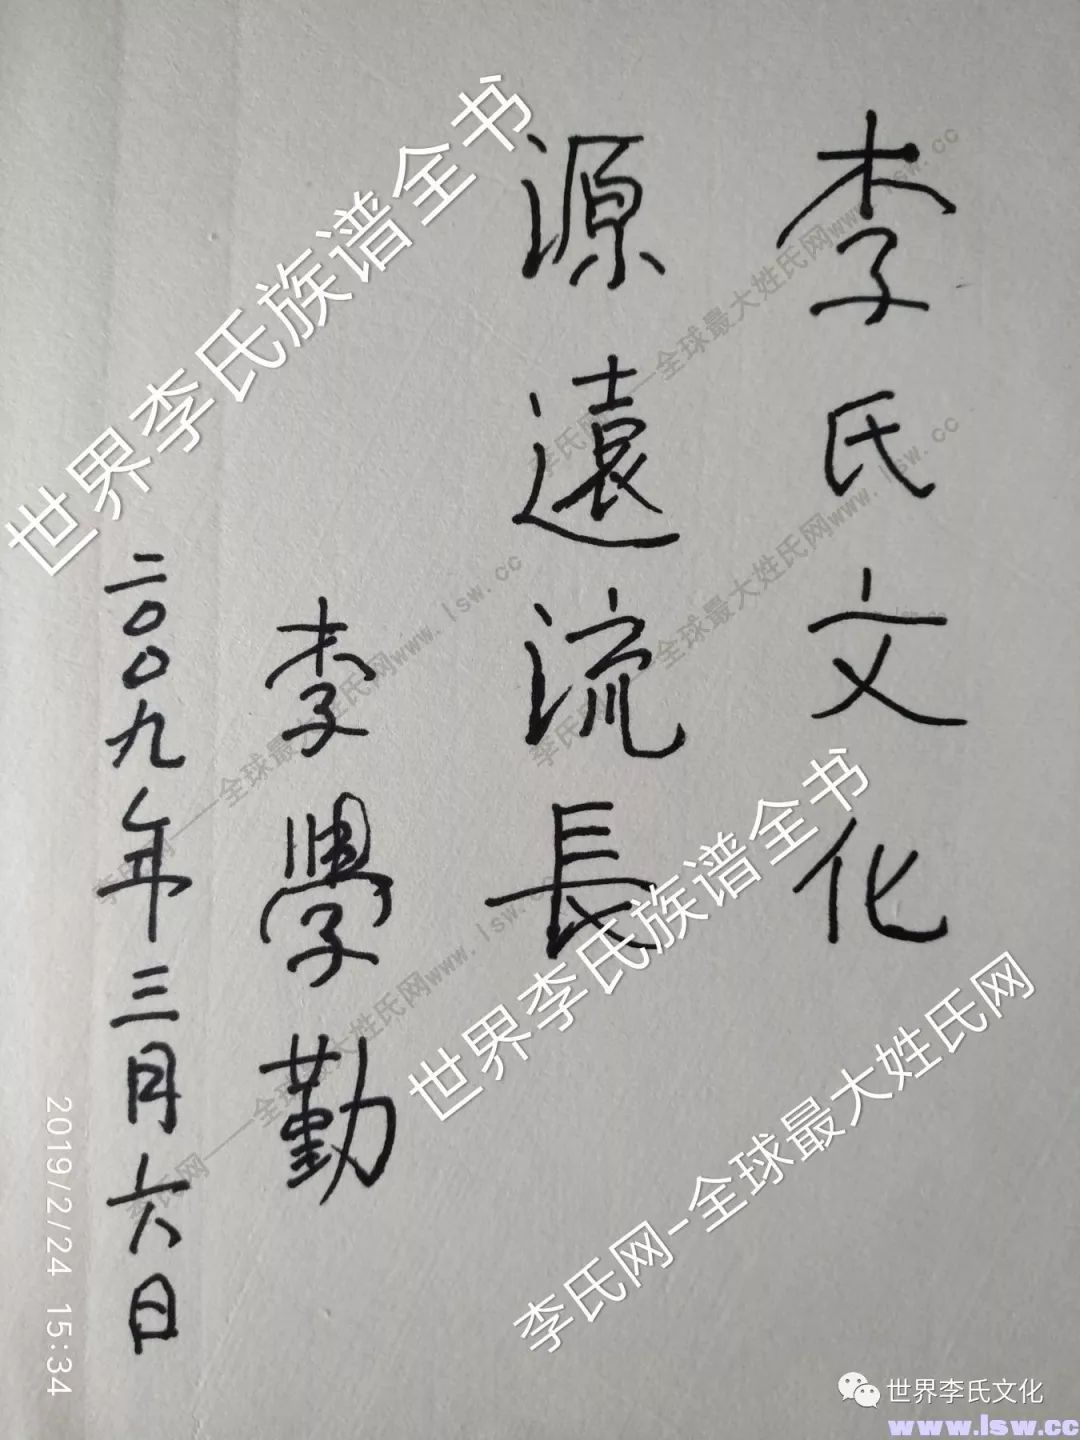 李氏文化
源遠流長
李學勤
二〇〇九年三月六日
世界李氏族谱全书
世界李氏族谱全书
李氏网-全球最大姓氏网
李氏网——全球最大姓氏网www.lsw.cc
李氏网——全球最大姓氏网www.lsw.cc
李氏网——全球最大姓氏网www.lsw.cc
李氏网——全球最大姓氏网www.lsw.cc
2019/2/24 15:34
世界李氏文化
www.lsw.cc